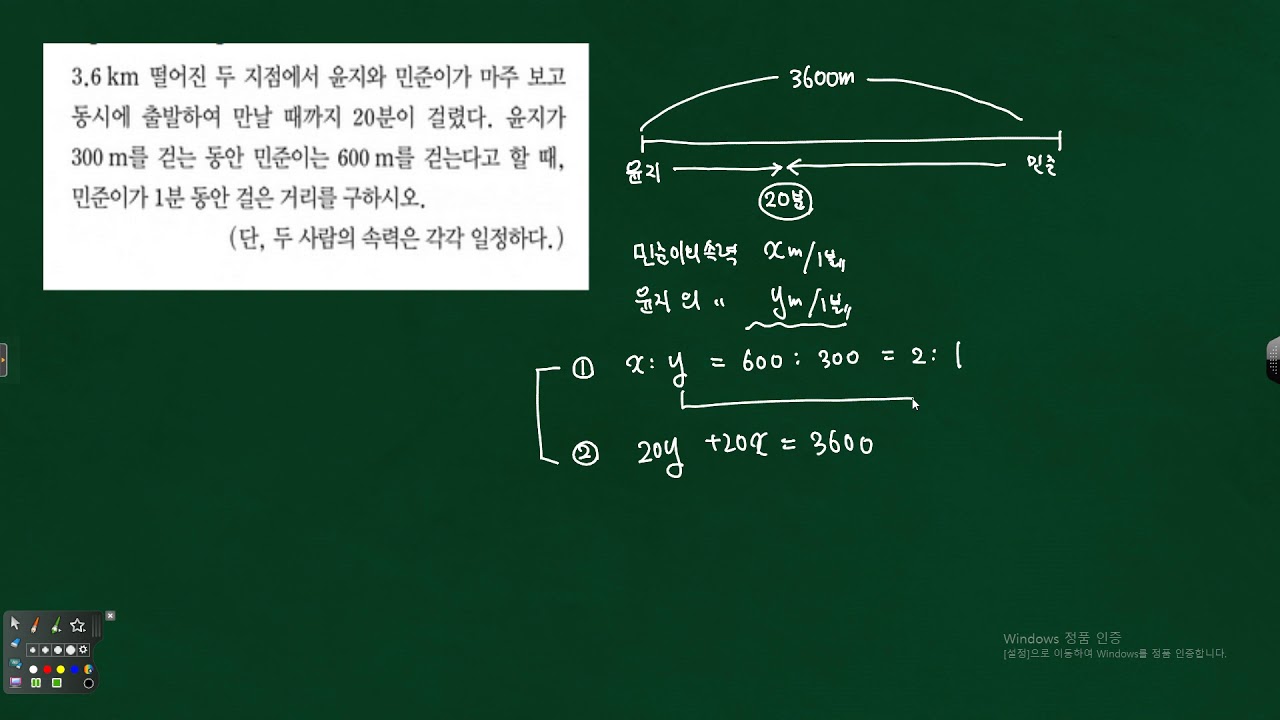 3.6 km 떨어진 두 지점에서 윤지와 민준이가 마주 보고
동시에 출발하여 만날 때까지 20분이 걸렸다. 윤지가
300 m를 걷는 동안 민준이는 600 m를 걷는다고 할 때,
민준이가 1분 동안 걸은 거리를 구하시오.
(단, 두 사람의 속력은 각각 일정하다.)
3600m
윤지 민준
20분
민준이의 속력 xm/1분
윤지의 〃 ym/1분
① x : y = 600 : 300 = 2 : 1
② 20y + 20x = 3600
Windows 정품 인증
[설정]으로 이동하여 Windows를 정품 인증합니다.